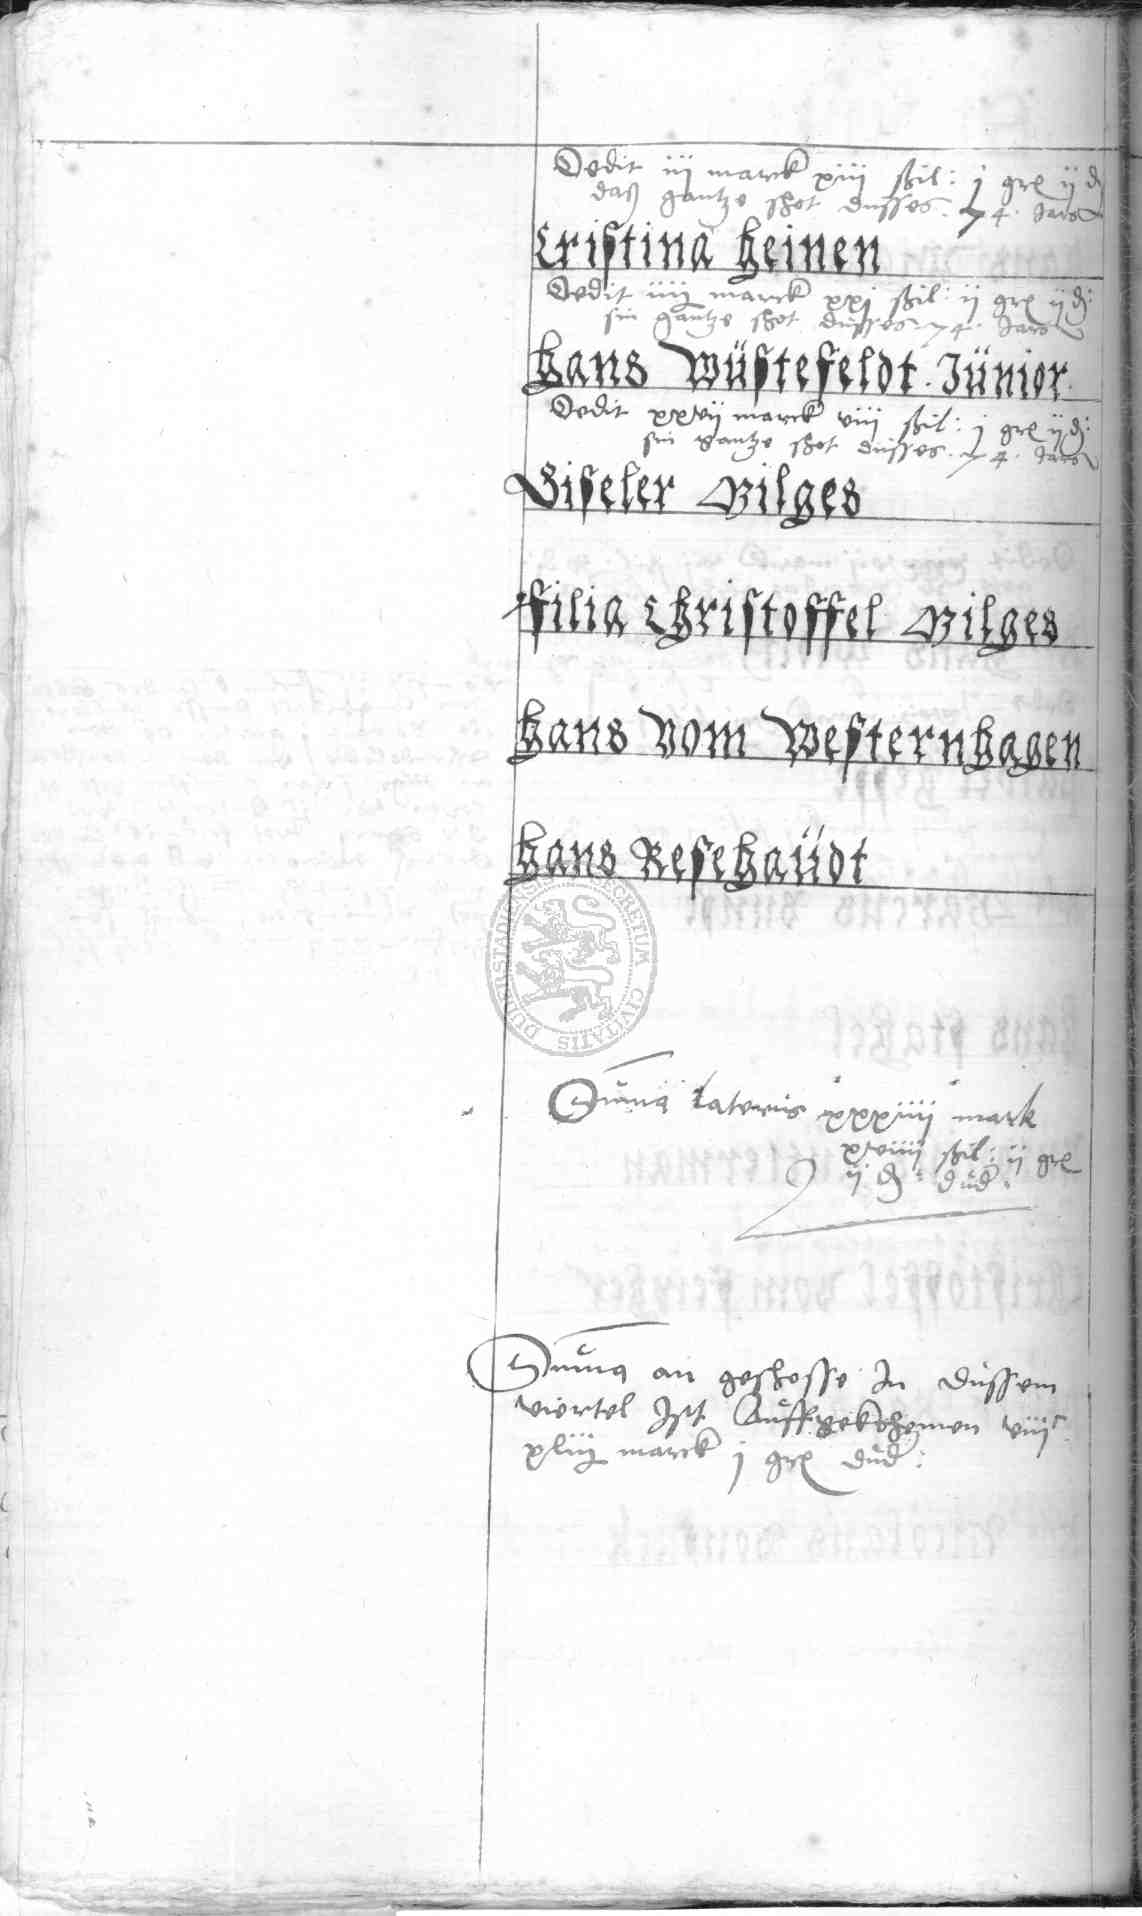 Dedit iij marck xiiij ßil: j gr ij d
daß gantze shot dusses 74 Jars
Cristina Heinen
Dedit iiij marck xxj ßil: ij gr ij d:
sin gantze shot dusses 74 Jars
Hans Wüstefeldt Jünior
Dedit xxvij marck viij ßil: j gr ij d:
sin gantze shot dusses 74 Jars
Giseler Bilges
filia Christoffel Bilges
Hans Vom Westernhagen
Hans Resehaüdt
SECRETUM CIVITATIS DUDERSTADIENSIS
Suma Lateris xxxiiij mark
xviiij ßil: ij gr
ij d: dud:
Suma an geshosse In dussem
viertel Ist Auffgekhomen viijc
xliij marck j gr dud: